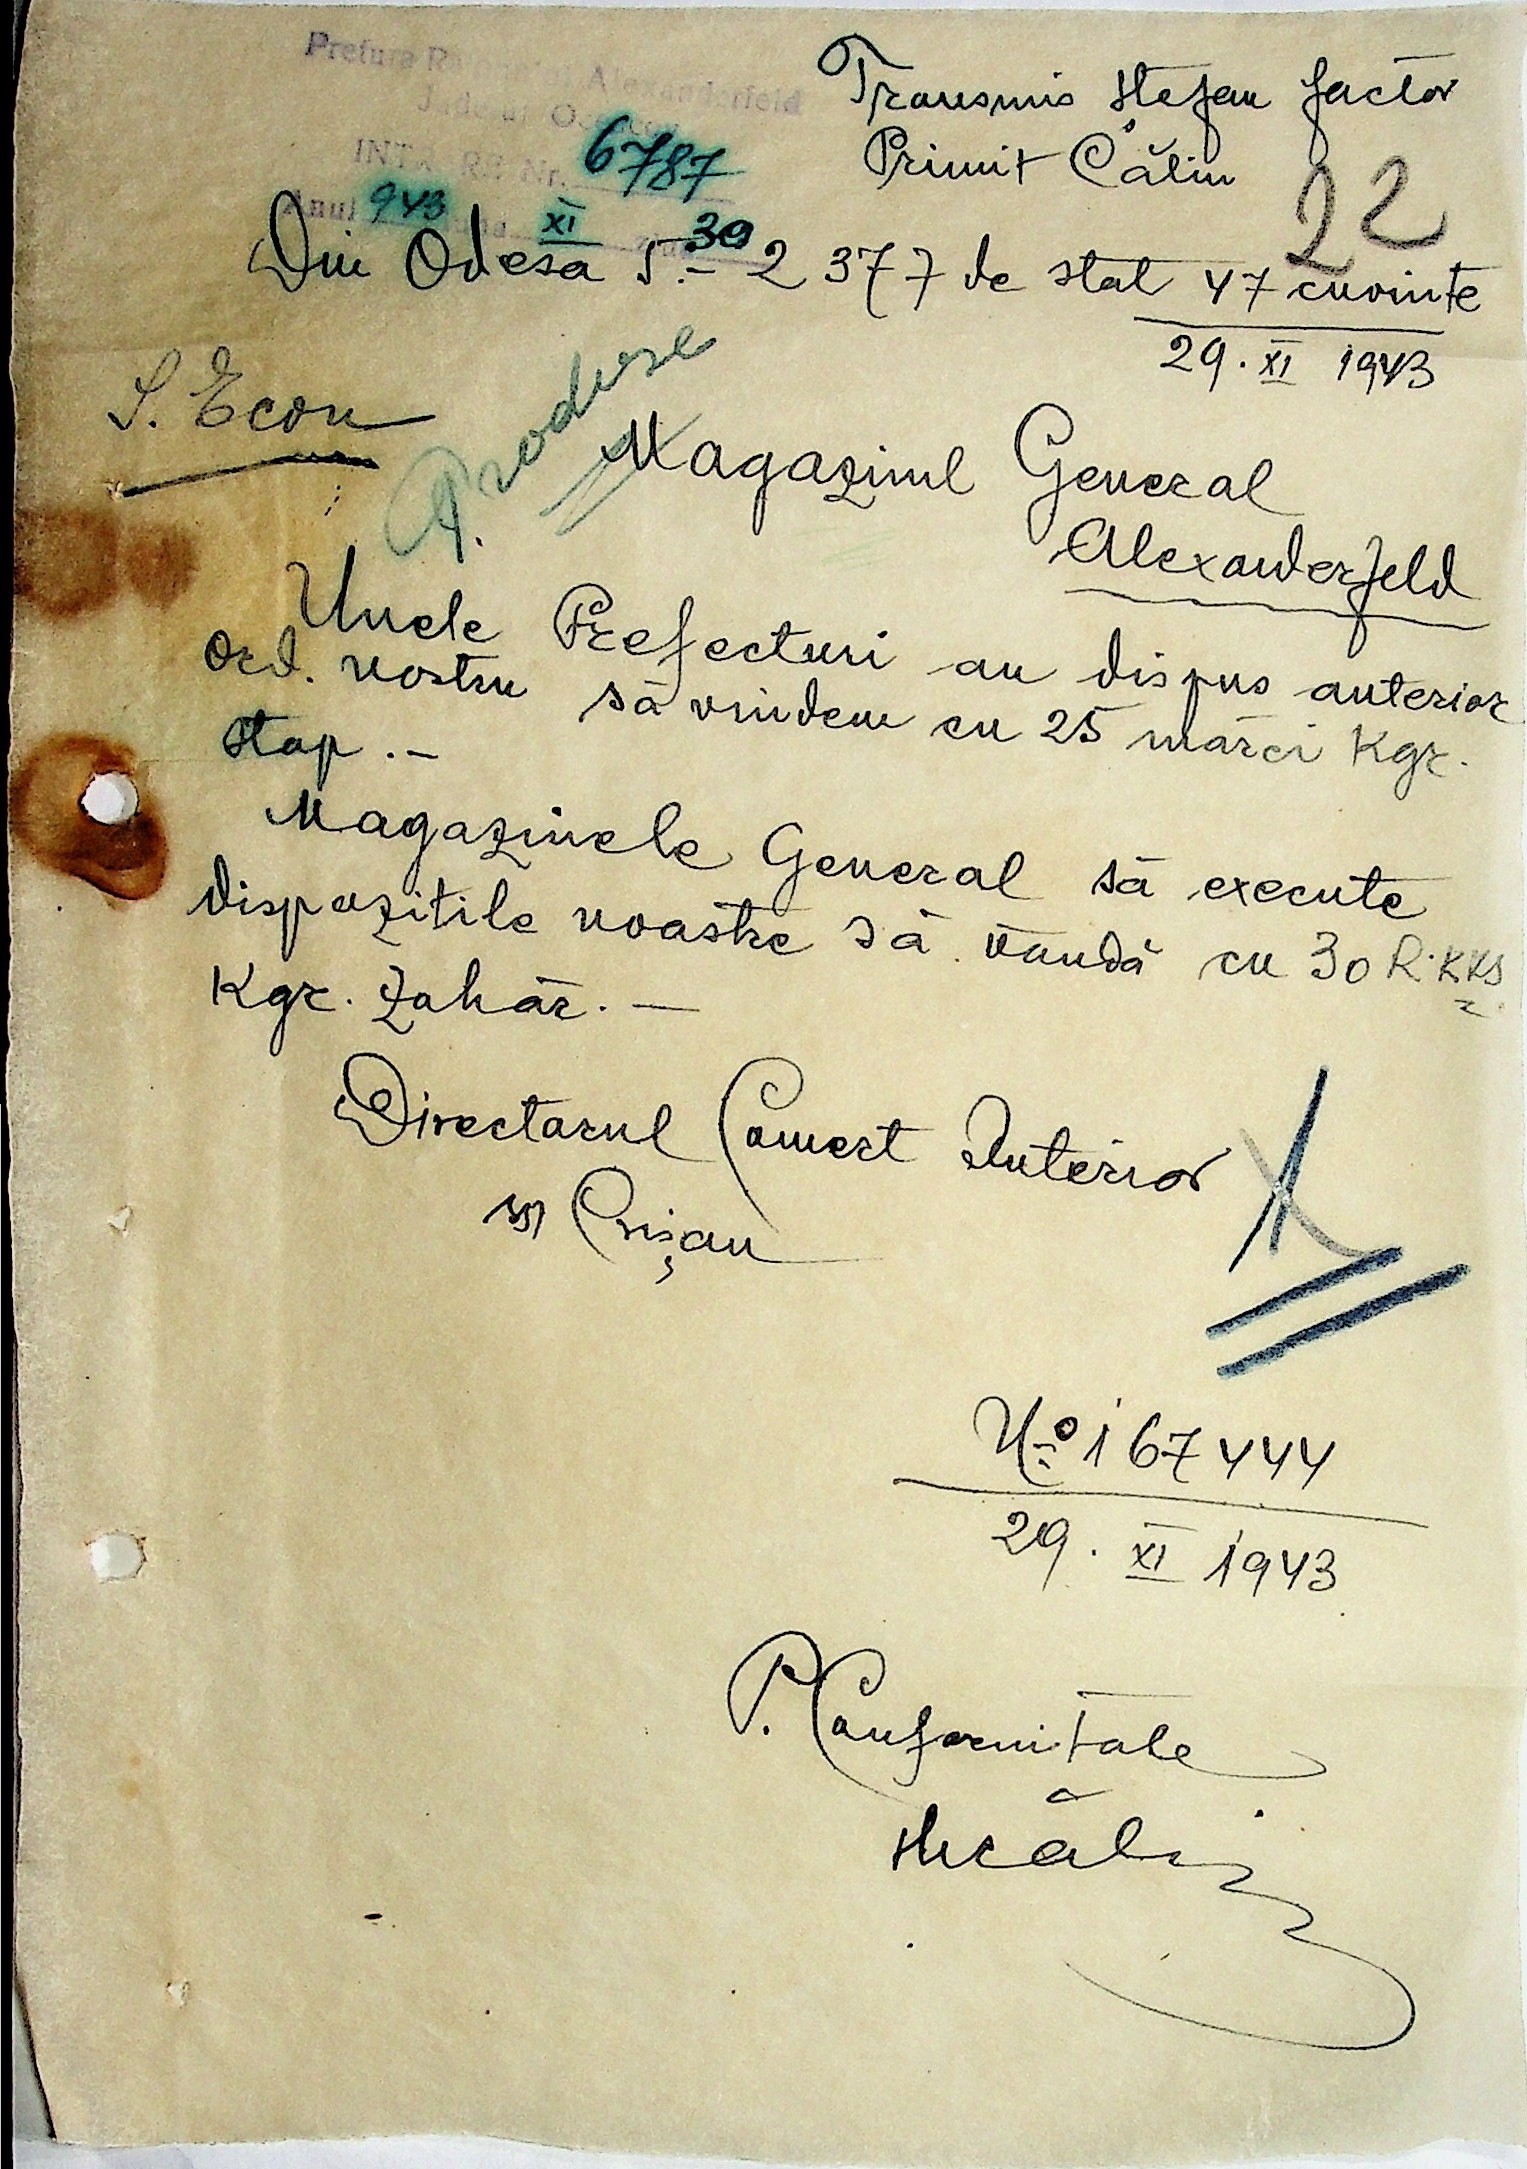 Prefura Raionului Alexanderfeld
INTR. Nr. 6787
Anul 943 XI 30
Transmis Stefan factor
Primit Călin
22
Din Odesa 5.- 2 377 de stat 47 cuvinte
29. XI 1943
S. Econ
Produse
Magazinul General
Alexanderfeld
Unele Prefecturi au dispus anterior
ord. nostru să vindem cu 25 mărci Kgr.
stop .-
Magazinele General să execute
dispozitile noastre să vândă cu 30 R.KKS
Kgr. Zahăr. -
Directorul Comert Interior
ss Crișan
No 167444
29. XI 1943
P. Conformitate